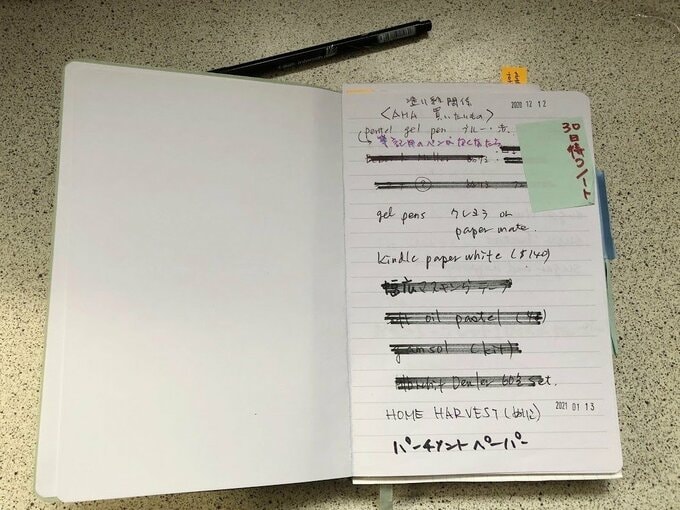 塗り絵関係
2020 12 12
<AHA 買いたいもの>
pastel gel pen ブルー・赤
筆記用のペンがなくなったら
30日待つノート
②
gel pens クレヨラ or
paper mate.
kindle paper white ($140)
幅広マスキングテープ
oil pastel
gamsol (kit)
60色 set.
HOME HARVEST
2021 01 13
パーチメントペーパー